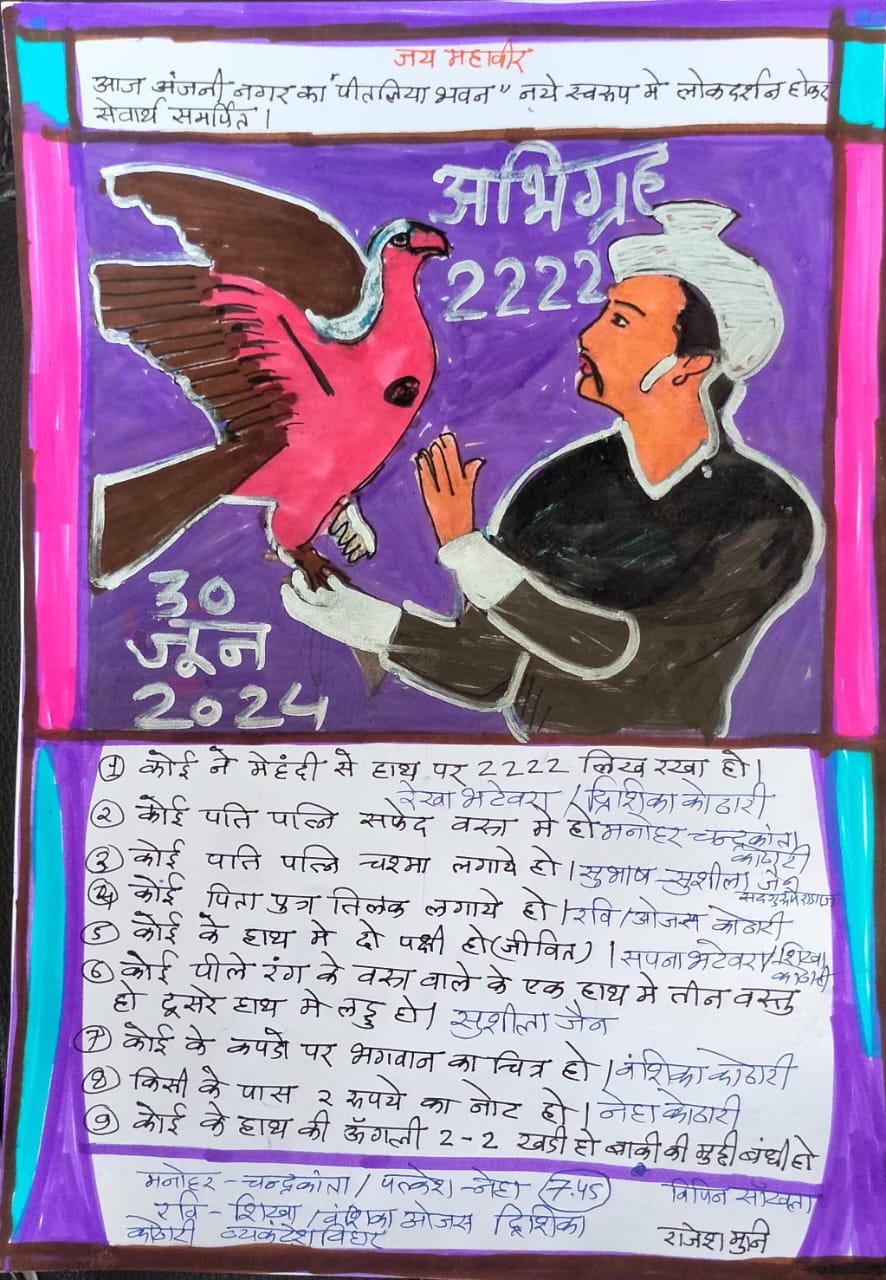 जय महावीर
आज अंजनी नगर का "पीतलिया भवन" नये स्वरूप मे लोकदर्शन होकर
सेवार्थ समर्पित ।
अभिग्रह
2222
30
जून
2024
① कोई ने मेहंदी से हाथ पर 2222 लिख रखा हो।
रेखा भटेवरा / द्विशिका कोठारी
② कोई पति पत्नि सफेद वस्त्र मे हो मनोहर चन्द्रकांता
कोठारी
③ कोई पति पत्नि चश्मा लगाये हो । सुभाष-सुशीला जैन
④ कोई पिता पुत्र तिलक लगाये हो । रवि / ओजस कोठारी
⑤ कोई के हाथ मे दो पक्षी हो (जीवित) । सपना भटेवरा / शिखा
कोठारी
⑥ कोई पीले रंग के वस्त्र वाले के एक हाथ मे तीन वस्तु
हो दूसरे हाथ मे लड्डु हो। सुशीला जैन
⑦ कोई के कपडो पर भगवान का चित्र हो । वंशिका कोठारी
⑧ किसी के पास २ रूपये का नोट हो । नेहा कोठारी
⑨ कोई के हाथ की ऊँगली 2-2 खडी हो बाकी की मुठ्ठी बंधी हो
मनोहर - चन्द्रकांता / - नेहा (7.45) विपिन
रवि - शिखा / वंशिका ओजस द्विशिका
कोठारी व्यंकटेश विहार राजेश मुनि